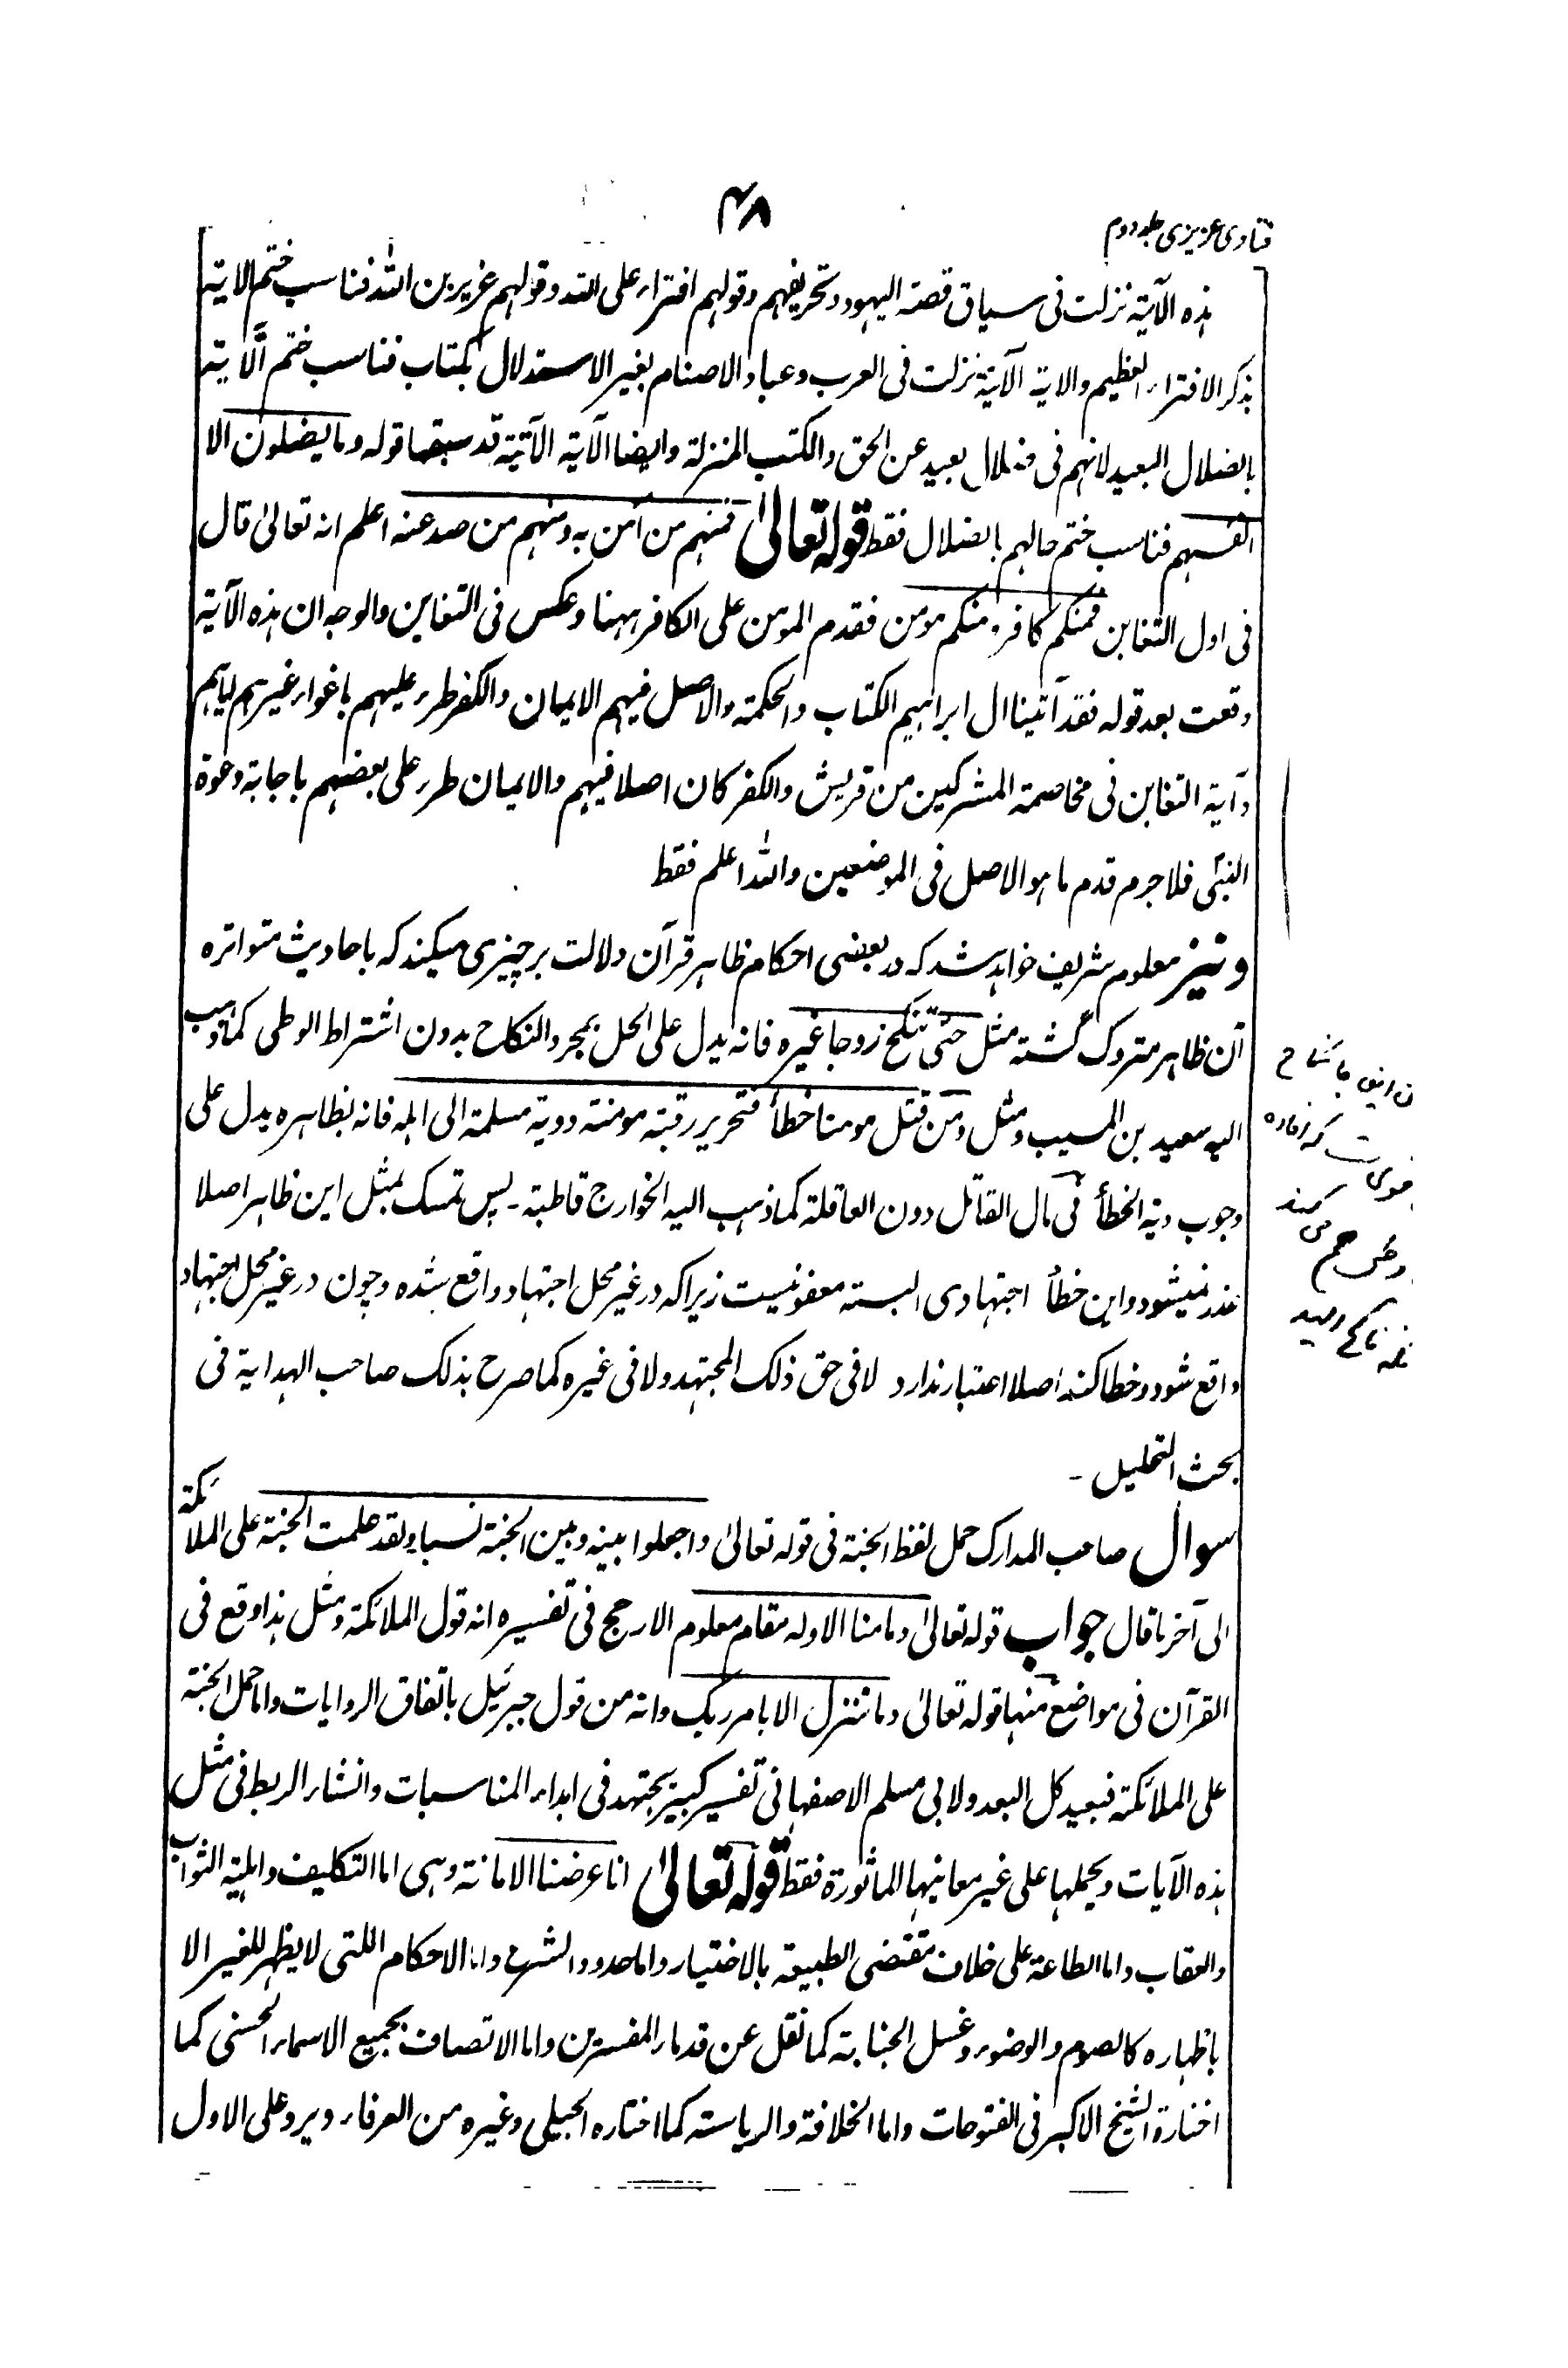 ۴۸
فتاوی عزیزی جلد دوم
ہذہ الآیۃ نزلت فی سیاق قصۃ الیہود و تحریفہم و قولہم افتراء علی اللہ و قولہم عزیر بن اللہ فناسب ختم الایۃ
بذکر الافتراء العظیم والایۃ الآتیۃ نزلت فی العرب و عباد الاصنام بغیر الاستدلال بکتاب فناسب ختم الآیۃ
بالضلال البعید لانہم فی ضلال بعید عن الحق والکتب المنزلۃ وایضا الآیۃ الآتیۃ قد سبقہا قولہ وما یضلون الا
انفسہم فناسب ختم حالہم بالضلال فقط قولہ تعالیٰ فمنہم من آمن بہ ومنہم من صد عنہ اعلم انہ تعالیٰ قال
فی اول التغابن فمنکم کافر ومنکم مومن فقدم المومن علی الکافر ہہنا وعکس فی التغابن والوجہ ان ہذہ الآیۃ
وقعت بعد قولہ فقد آتینا ال ابراہیم الکتاب والحکمۃ والاصل فیہم الایمان والکفر طرء علیہم باغواء غیرہم ایاہم
وآیۃ التغابن فی مخاصمۃ المشرکین من قریش والکفر کان اصلا فیہم والایمان طرء علی بعضہم باجابۃ دعوۃ
النبی فلا جرم قدم ما ہو الاصل فی الموضعین واللہ اعلم فقط
ونیز معلوم شریف خواہد شد کہ در بعضی احکام ظاہر قرآن دلالت بر چیزی میکند کہ باحادیث متواترہ
آن ظاہر متروک گشتہ مثل حتی تنکح زوجا غیرہ فانہ یدل علی الحل بمجرد النکاح بدون اشتراط الوطی کما ذہب
الیہ سعید بن المسیب ومثل ومن قتل مومنا خطأ فتحریر رقبۃ مومنۃ ودیۃ مسلمۃ الی اہلہ فانہ بظاہرہ یدل علی
وجوب دیۃ الخطأ فی مال القاتل دون العاقلۃ کما ذہب الیہ الخوارج قاطبۃ۔ پس تمسک بمثل این ظاہر اصلا
عذر نمیشود واین خطأ اجتہادی البستہ معفو نیست زیرا کہ در غیر محل اجتہاد واقع شدہ وچون در غیر محل اجتہاد
واقع شود و خطا کند اصلا اعتبار ندارد لا فی حق ذلک المجتہد ولا فی غیرہ کما صرح بذلک صاحب الہدایۃ فی
بحث التحلیل۔
سوال صاحب المدارک حمل لفظ الجنۃ فی قولہ تعالیٰ واجعلوا بینہ وبین الجنۃ نسبا ولقد علمت الجنۃ علی الملائکۃ
الی آخر ما قال جواب قولہ تعالیٰ وما منا الا ولہ مقام معلوم الارجح فی تفسیرہ انہ قول الملائکۃ ومثل ہذا وقع فی
القرآن فی مواضع منہا قولہ تعالیٰ وما نتنزل الا بامر ربک وانہ من قول جبرئیل باتفاق الروایات واما حمل الجنۃ
علی الملائکۃ فبعید کل البعد ولابی مسلم الاصفہانی تفسیر کبیر یجتہد فی ابداء المناسبات وانشاء الربط فی مثل
ہذہ الآیات ویحملہا علی غیر معانیہا الماثورۃ فقط قولہ تعالیٰ انا عرضنا الامانۃ وہی اما التکلیف واہلیۃ الثواب
والعقاب واما الطاعۃ علی خلاف مقتضی الطبیعۃ بالاختیار واما حدود الشرع واما الاحکام اللتی لا یظہر للغیر الا
باظہارہ کالصوم والوضوء وغسل الجنابۃ کما نقل عن قدماء المفسرین واما الاتصاف بجمیع الاسماء الحسنی کما
اختارہ الشیخ الاکبر فی الفتوحات واما الخلافۃ والریاستہ کما اختارہ الجیلی وغیرہ من العرفاء ویرد علی الاول